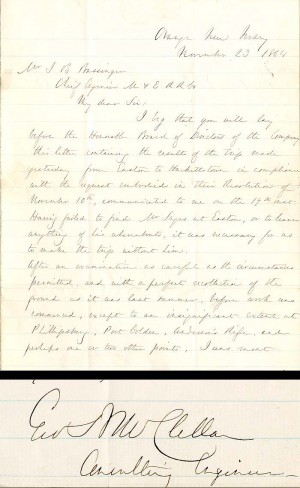 Orange New Jersey
November 23 1864
Mr J B Bassinger
Chief Engineer M & E R R Co
My dear Sir:
I beg that you will lay
before the Honorable Board of Directors of the Company
this letter containing the results of the trip made
yesterday from Easton to Hackettstown in compliance
with the request embodied in their Resolution of
November 10th, communicated to me on the 19th inst.
Having failed to find Mr at Easton, or to learn
anything of his whereabouts, it was necessary for us
to make the trip without him.
After an examination as careful as the circumstances
permitted, and with a perfect recollection of the
ground as it was last summer, before work was
commenced, except to an insignificant extent at
Phillipsburg, Port Colden, and
perhaps one or two other points, I was most
Geo B McClellan
Consulting Engineer